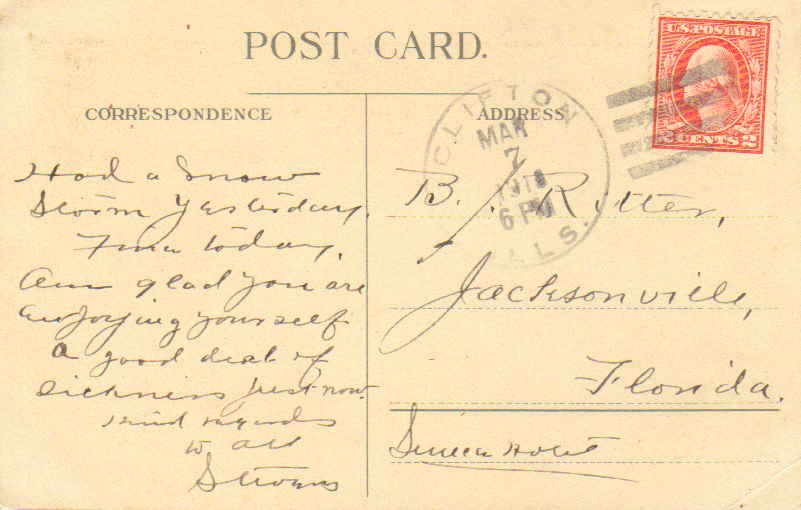 POST CARD.
CORRESPONDENCE
Had a Snow
Storm Yesterday.
Fine today.
Am glad you are
enjoying yourself
a good deal of
sickness just now.
Kind regards
to all
Stevens
ADDRESS
B. J. Ritter,
Jacksonville,
Florida.
Seneca Hotel
CLIFTON
MAR
7
6 PM
U.S. POSTAGE
2 CENTS 2